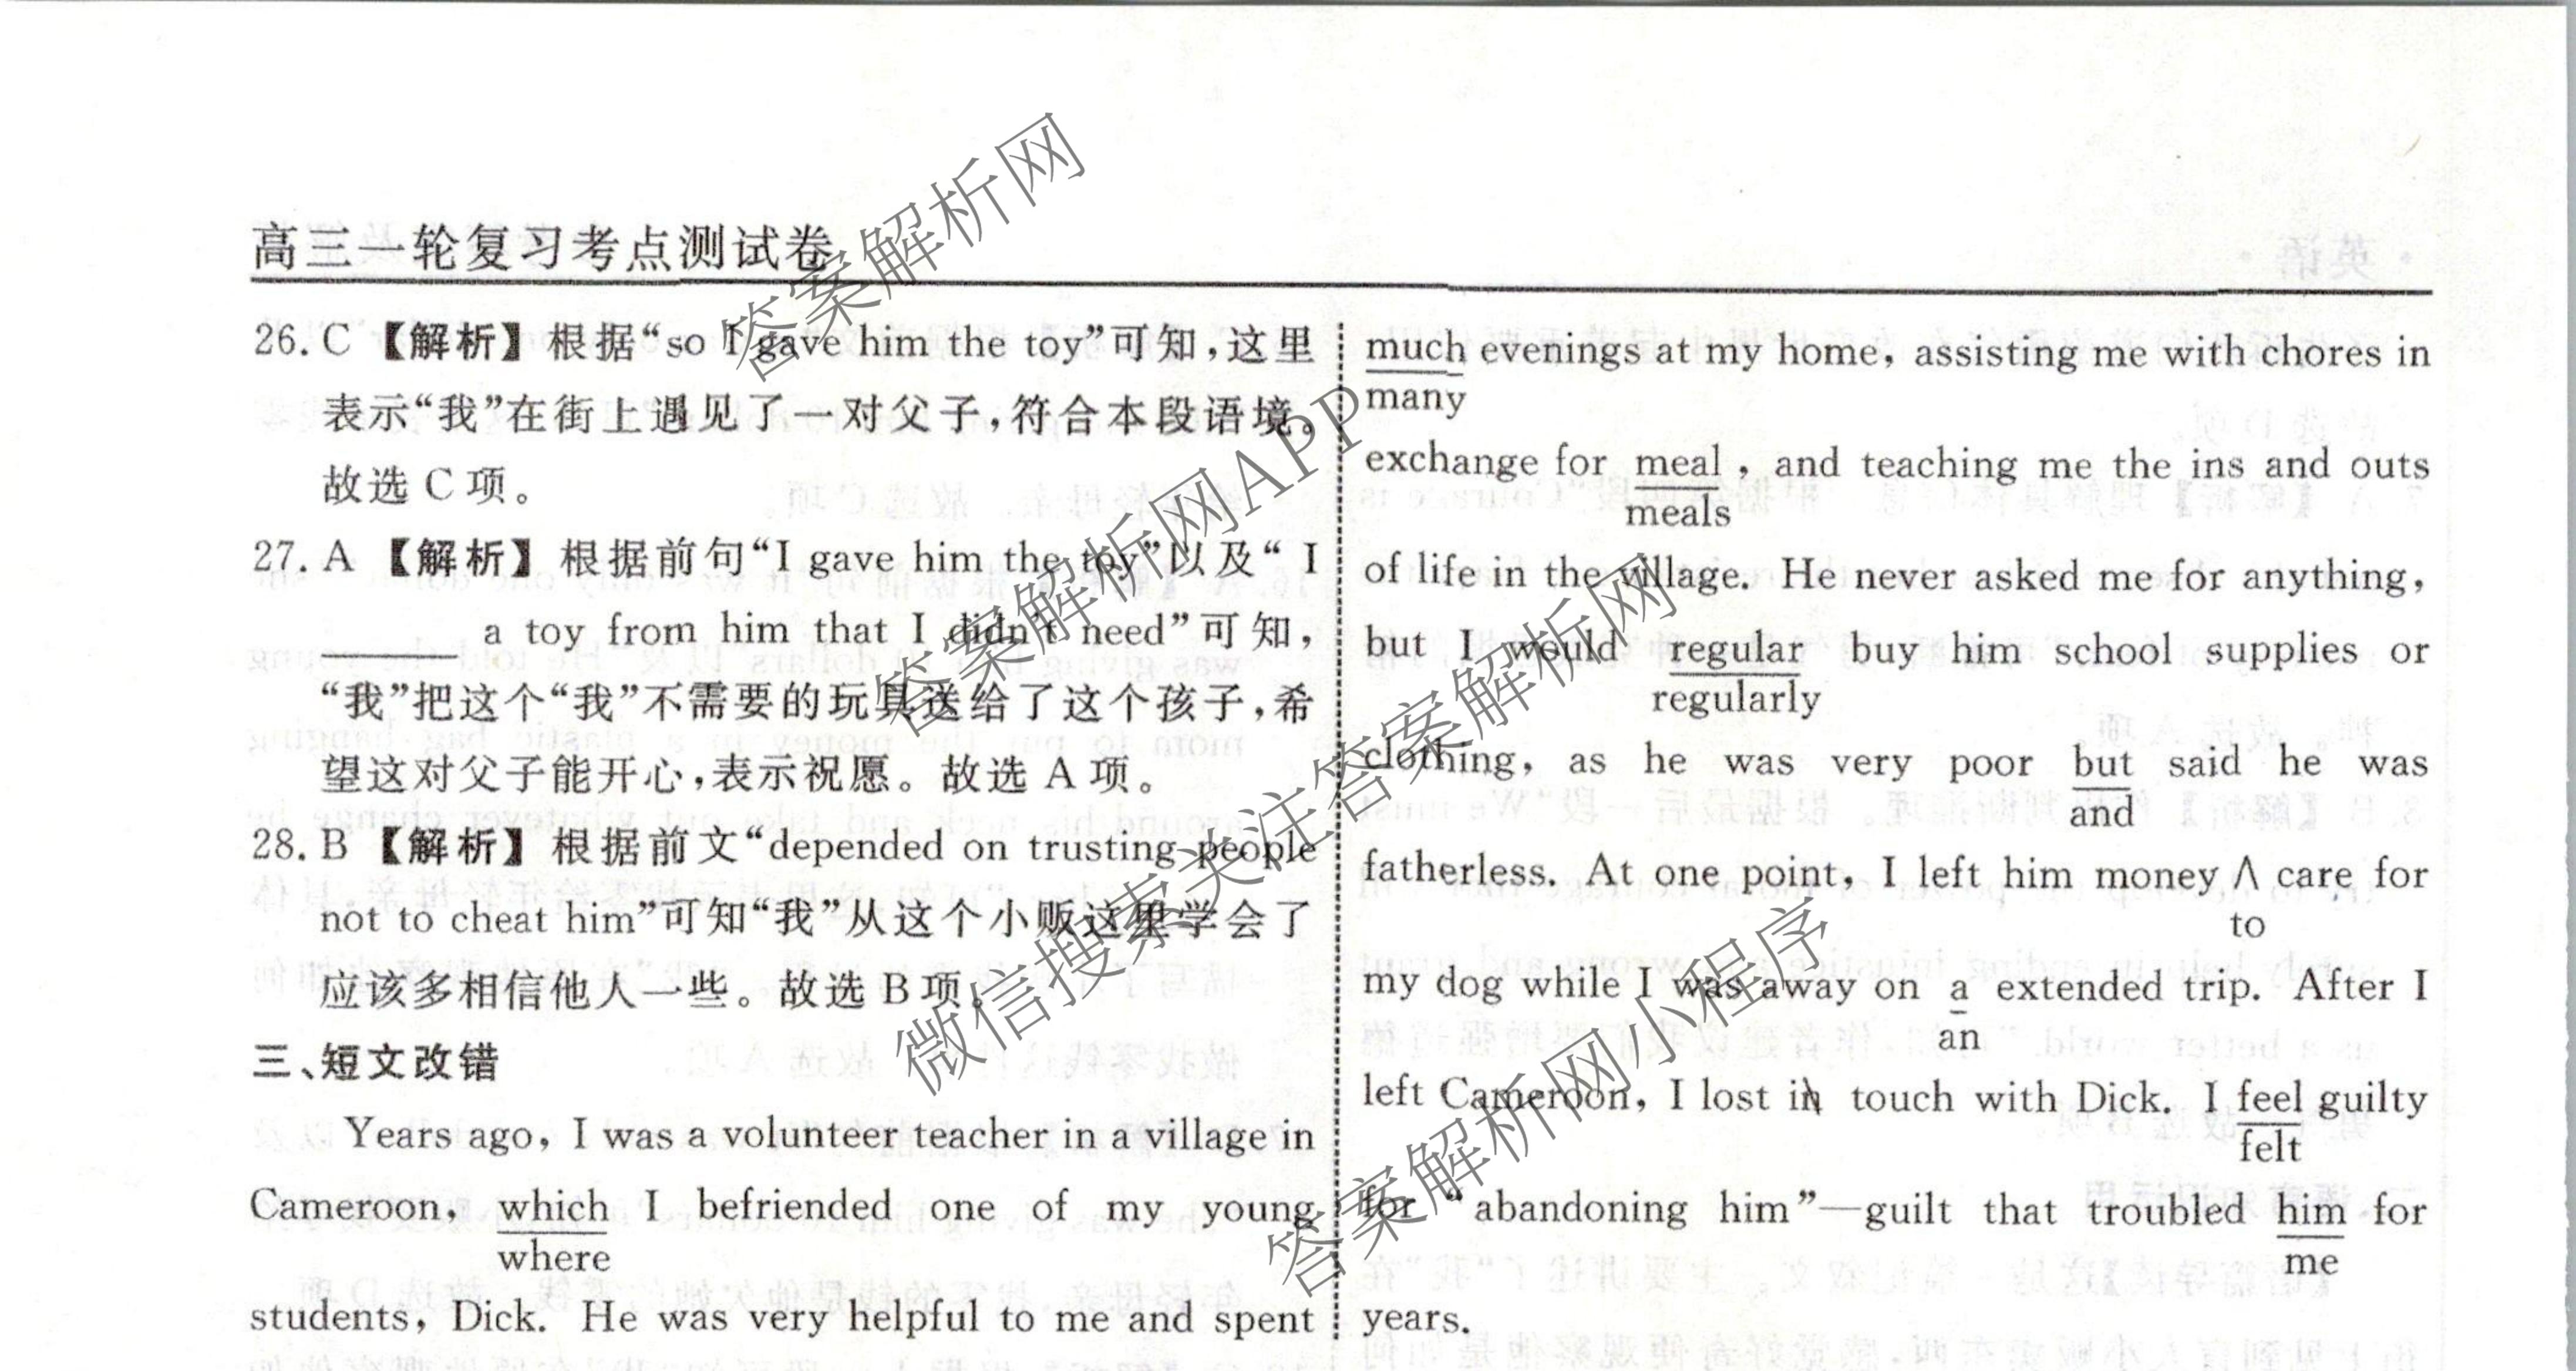 高三一轮复习考点测试卷
26. C 【解析】根据“so I gave him the toy”可知，这里
表示“我”在街上遇见了一对父子，符合本段语境。
故选 C 项。
27. A 【解析】根据前句“I gave him the toy”以及“ I
______ a toy from him that I didn't need”可知，
“我”把这个“我”不需要的玩具送给了这个孩子，希
望这对父子能开心，表示祝愿。故选 A 项。
28. B 【解析】根据前文“depended on trusting people
not to cheat him”可知“我”从这个小贩这里学会了
应该多相信他人一些。故选 B 项。
三、短文改错
Years ago, I was a volunteer teacher in a village in
Cameroon, which I befriended one of my young
where
students, Dick. He was very helpful to me and spent
much evenings at my home, assisting me with chores in
many
exchange for meal, and teaching me the ins and outs
meals
of life in the village. He never asked me for anything,
but I would regular buy him school supplies or
regularly
clothing, as he was very poor but said he was
and
fatherless. At one point, I left him money ∧ care for
to
my dog while I was away on a extended trip. After I
an
left Cameroon, I lost in touch with Dick. I feel guilty
felt
for “abandoning him”—guilt that troubled him for
me
years.
答案解析网
答案解析网APP
微信搜索关注答案解析网
答案解析网小程序